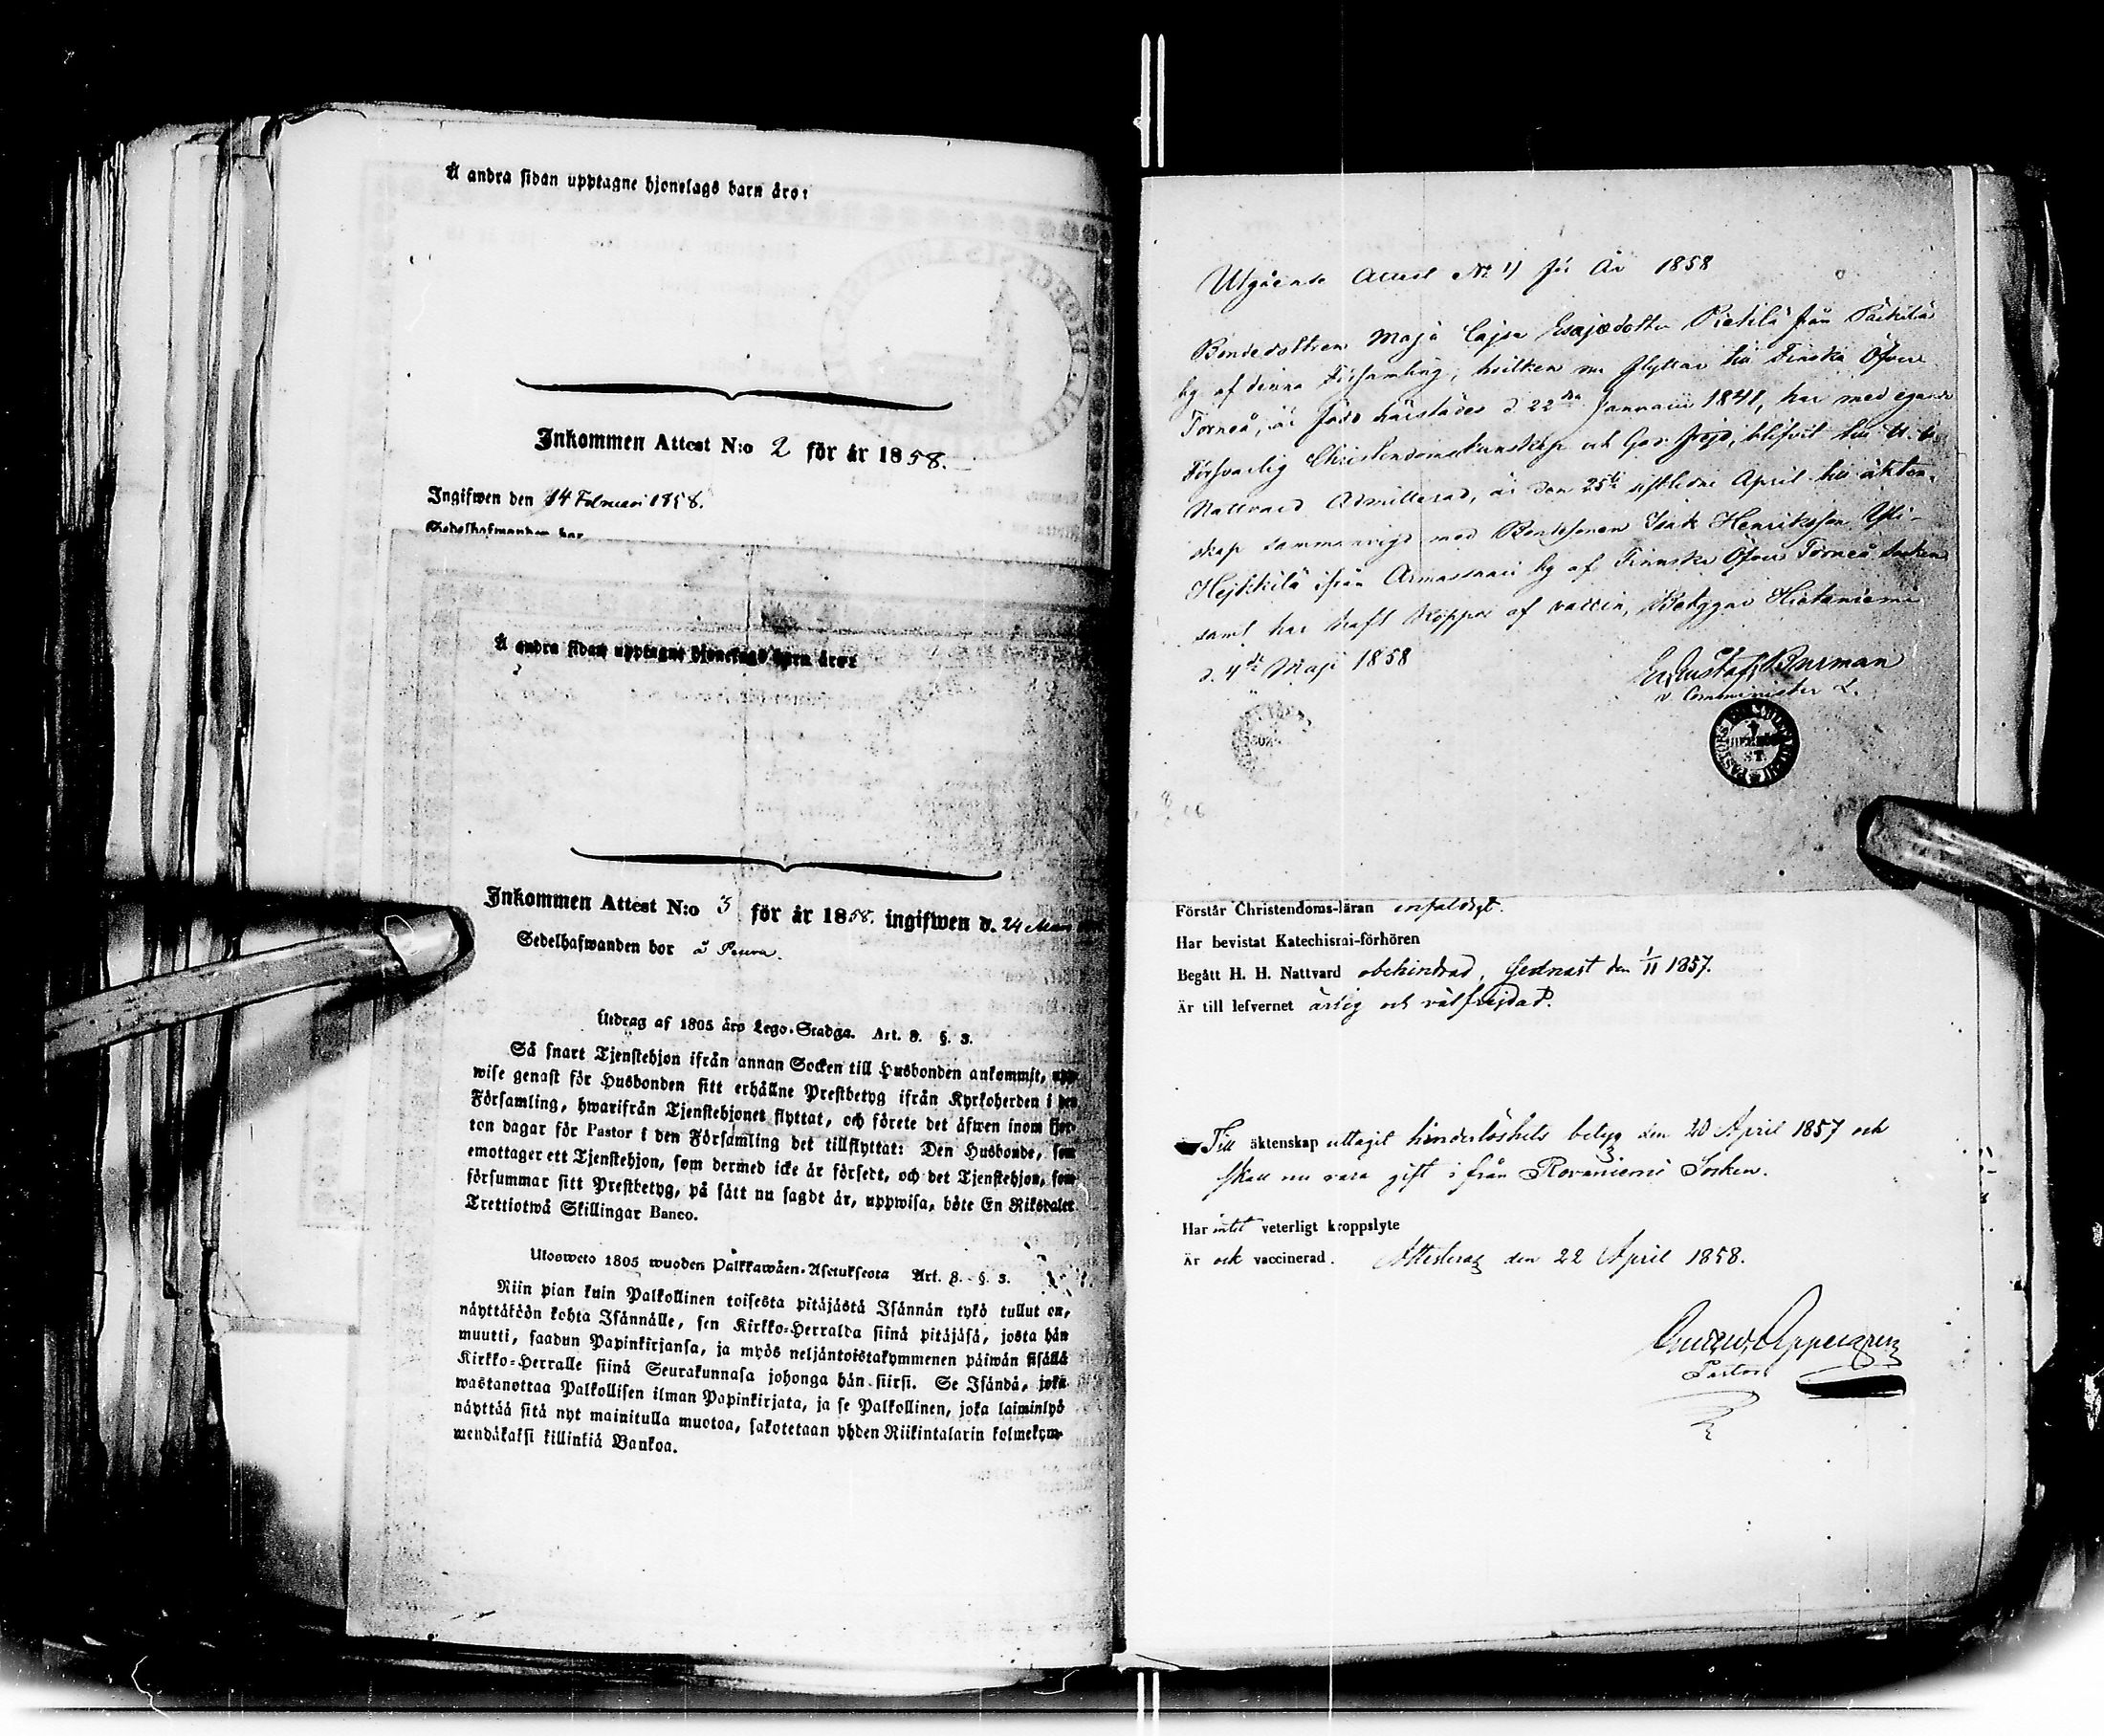 Å andra sidan upptagne hjonelags barn äro:
Inkommen Attest N:o 2 för år 1858.
Ingifwen den 14 Februari 1858.
Sedelhafwanden bor
Å andra sidan upptagne hjonelags barn äro:
Inkommen Attest N:o 3 för år 1858. ingifwen d. 24 Mars
Sedelhafwanden bor å
Utdrag af 1805 års Lego-Stadga. Art. 8. §. 3.
Så snart Tjenstehjon ifrån annan Socken till Husbonden ankommit, upp-
wise genast för Husbonden sitt erhållne Prestbetyg ifrån Kyrkoherden i den
Församling, hwarifrån Tjenstehjonet flyttat, och förete det äfwen inom fjor-
ton dagar för Pastor i den Församling det tillflyttat: Den Husbonde, som
emottager ett Tjenstehjon, som dermed icke är försedt, och det Tjenstehjon, som
försummar sitt Prestbetyg, på sätt nu sagdt är, uppwisa, böte En Riksdaler
Trettiotwå Skillingar Banco.
Ulosweto 1805 wuoden Palkkawäen-Asetuksesta Art. 8. §. 3.
Niin pian kuin Palkollinen toisesta pitäjästä Isännän tykö tullut on,
näyttäköön kohta Isännälle, sen Kirkko-Herralda siinä pitäjäsä, josta hän
muutti, saadun Papinkirjansa, ja myös neljäntoistakymmenen päiwän sisällä
Kirkko-Herralle siinä Seurakunnasa johonga hän siirsi. Se Isändä, joka
wastanottaa Palkollisen ilman Papinkirjata, ja se Palkollinen, joka laiminlyö
näyttää sitä nyt mainitulla muotoa, sakotetaan yhden Riikintalarin kolmekym-
mendäkaksi killinkiä Bankoa.
Utgående Attest No 4 för År 1858
Bondedottren Maja Cajsa Esajædotter Pietilä från Päkkilä
by af denna Församling, hvilken nu flyttar till Finska Öfver
Torneå, är född härstädes d 22dra Januarii 1841, har med egande
Försvarlig Christendomskunskap och God frejd, blifvit till H. H.
Nattvard Admitterad, är den 25te sistledne April till äkten-
skap sammanvigd med Bondesonen Isak Henriksson Yli-
Hejkkilä ifrån Armassaari by af Finnska Öfver Torneå Socken
samt har haft koppor af vaccin, Betygar Hietaniemi
d. 4de Maji 1858
Er. Gustaf Burman
v. Comminister L.
Förstår Christendoms-läran enfaldigt.
Har bevistat Katechismi-förhören
Begått H. H. Nattvard obehindrad, sednast den 1/11 1857.
Är till lefvernet ärlig och välfrejdad.
Till äktenskap uttagit hinderlöshets betyg den 20 April 1857 och
skall nu vara gift i från Rovaniemi Socken.
Har intet veterligt kroppslyte
Är ock vaccinerad. Attesteras den 22 April 1858.
Pastor